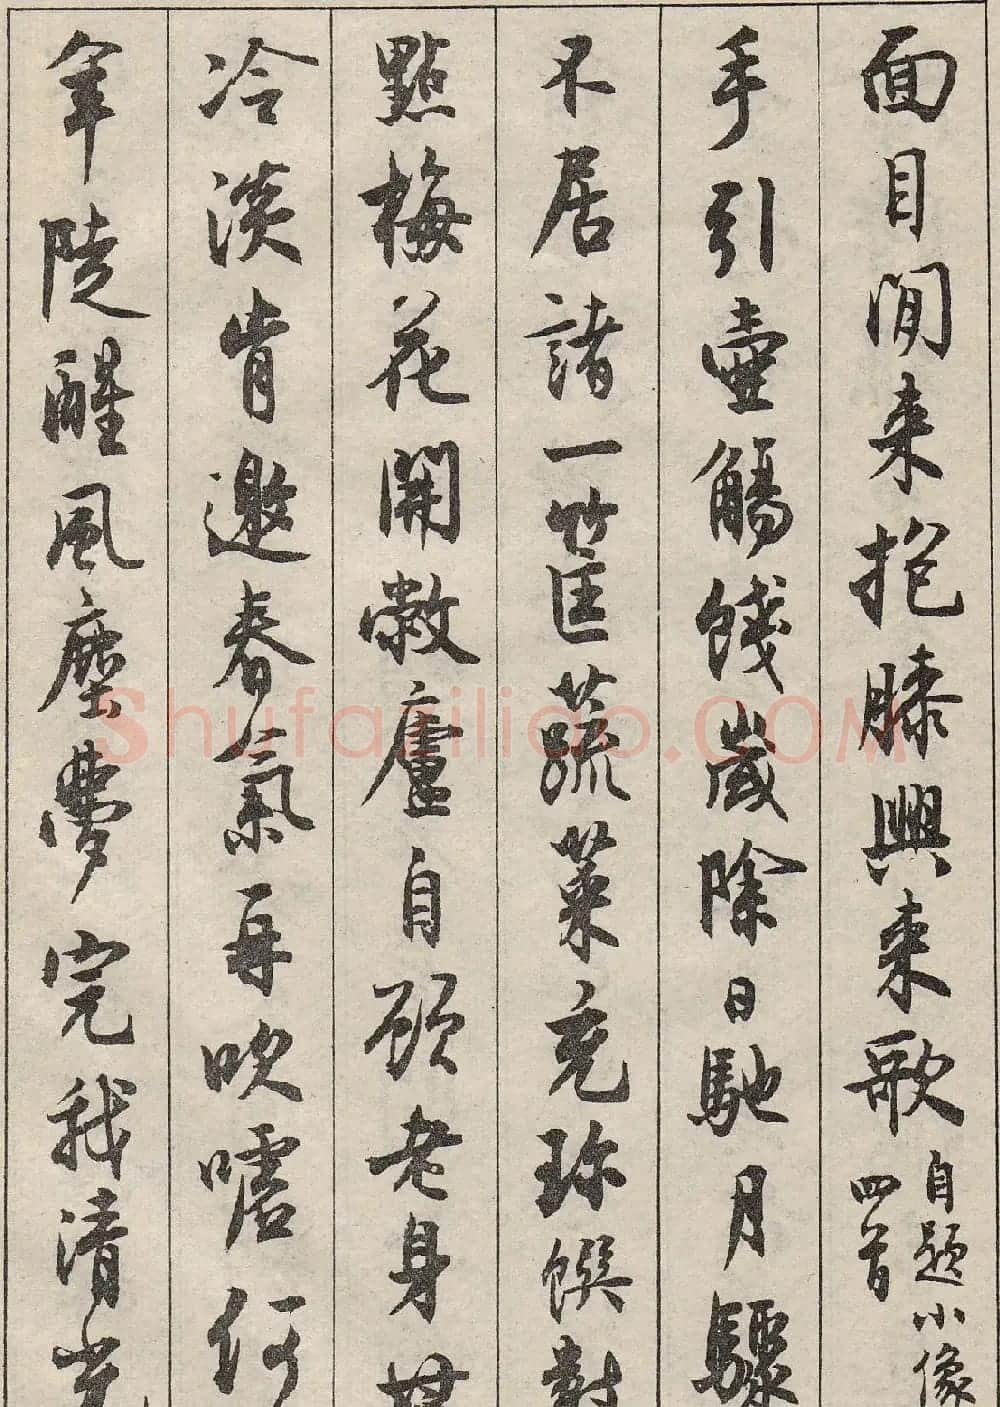 面目閒来抱膝興来歌自題小像
四首
手引壺觴餞歲除日馳月驟
不居諸一筐蔬菜充珍饌對
點梅花開敝廬自顧老身甘
冷淡肯邀春氣再吹噓何
年陡醒風塵夢完我清光
Shufaziliao.COM